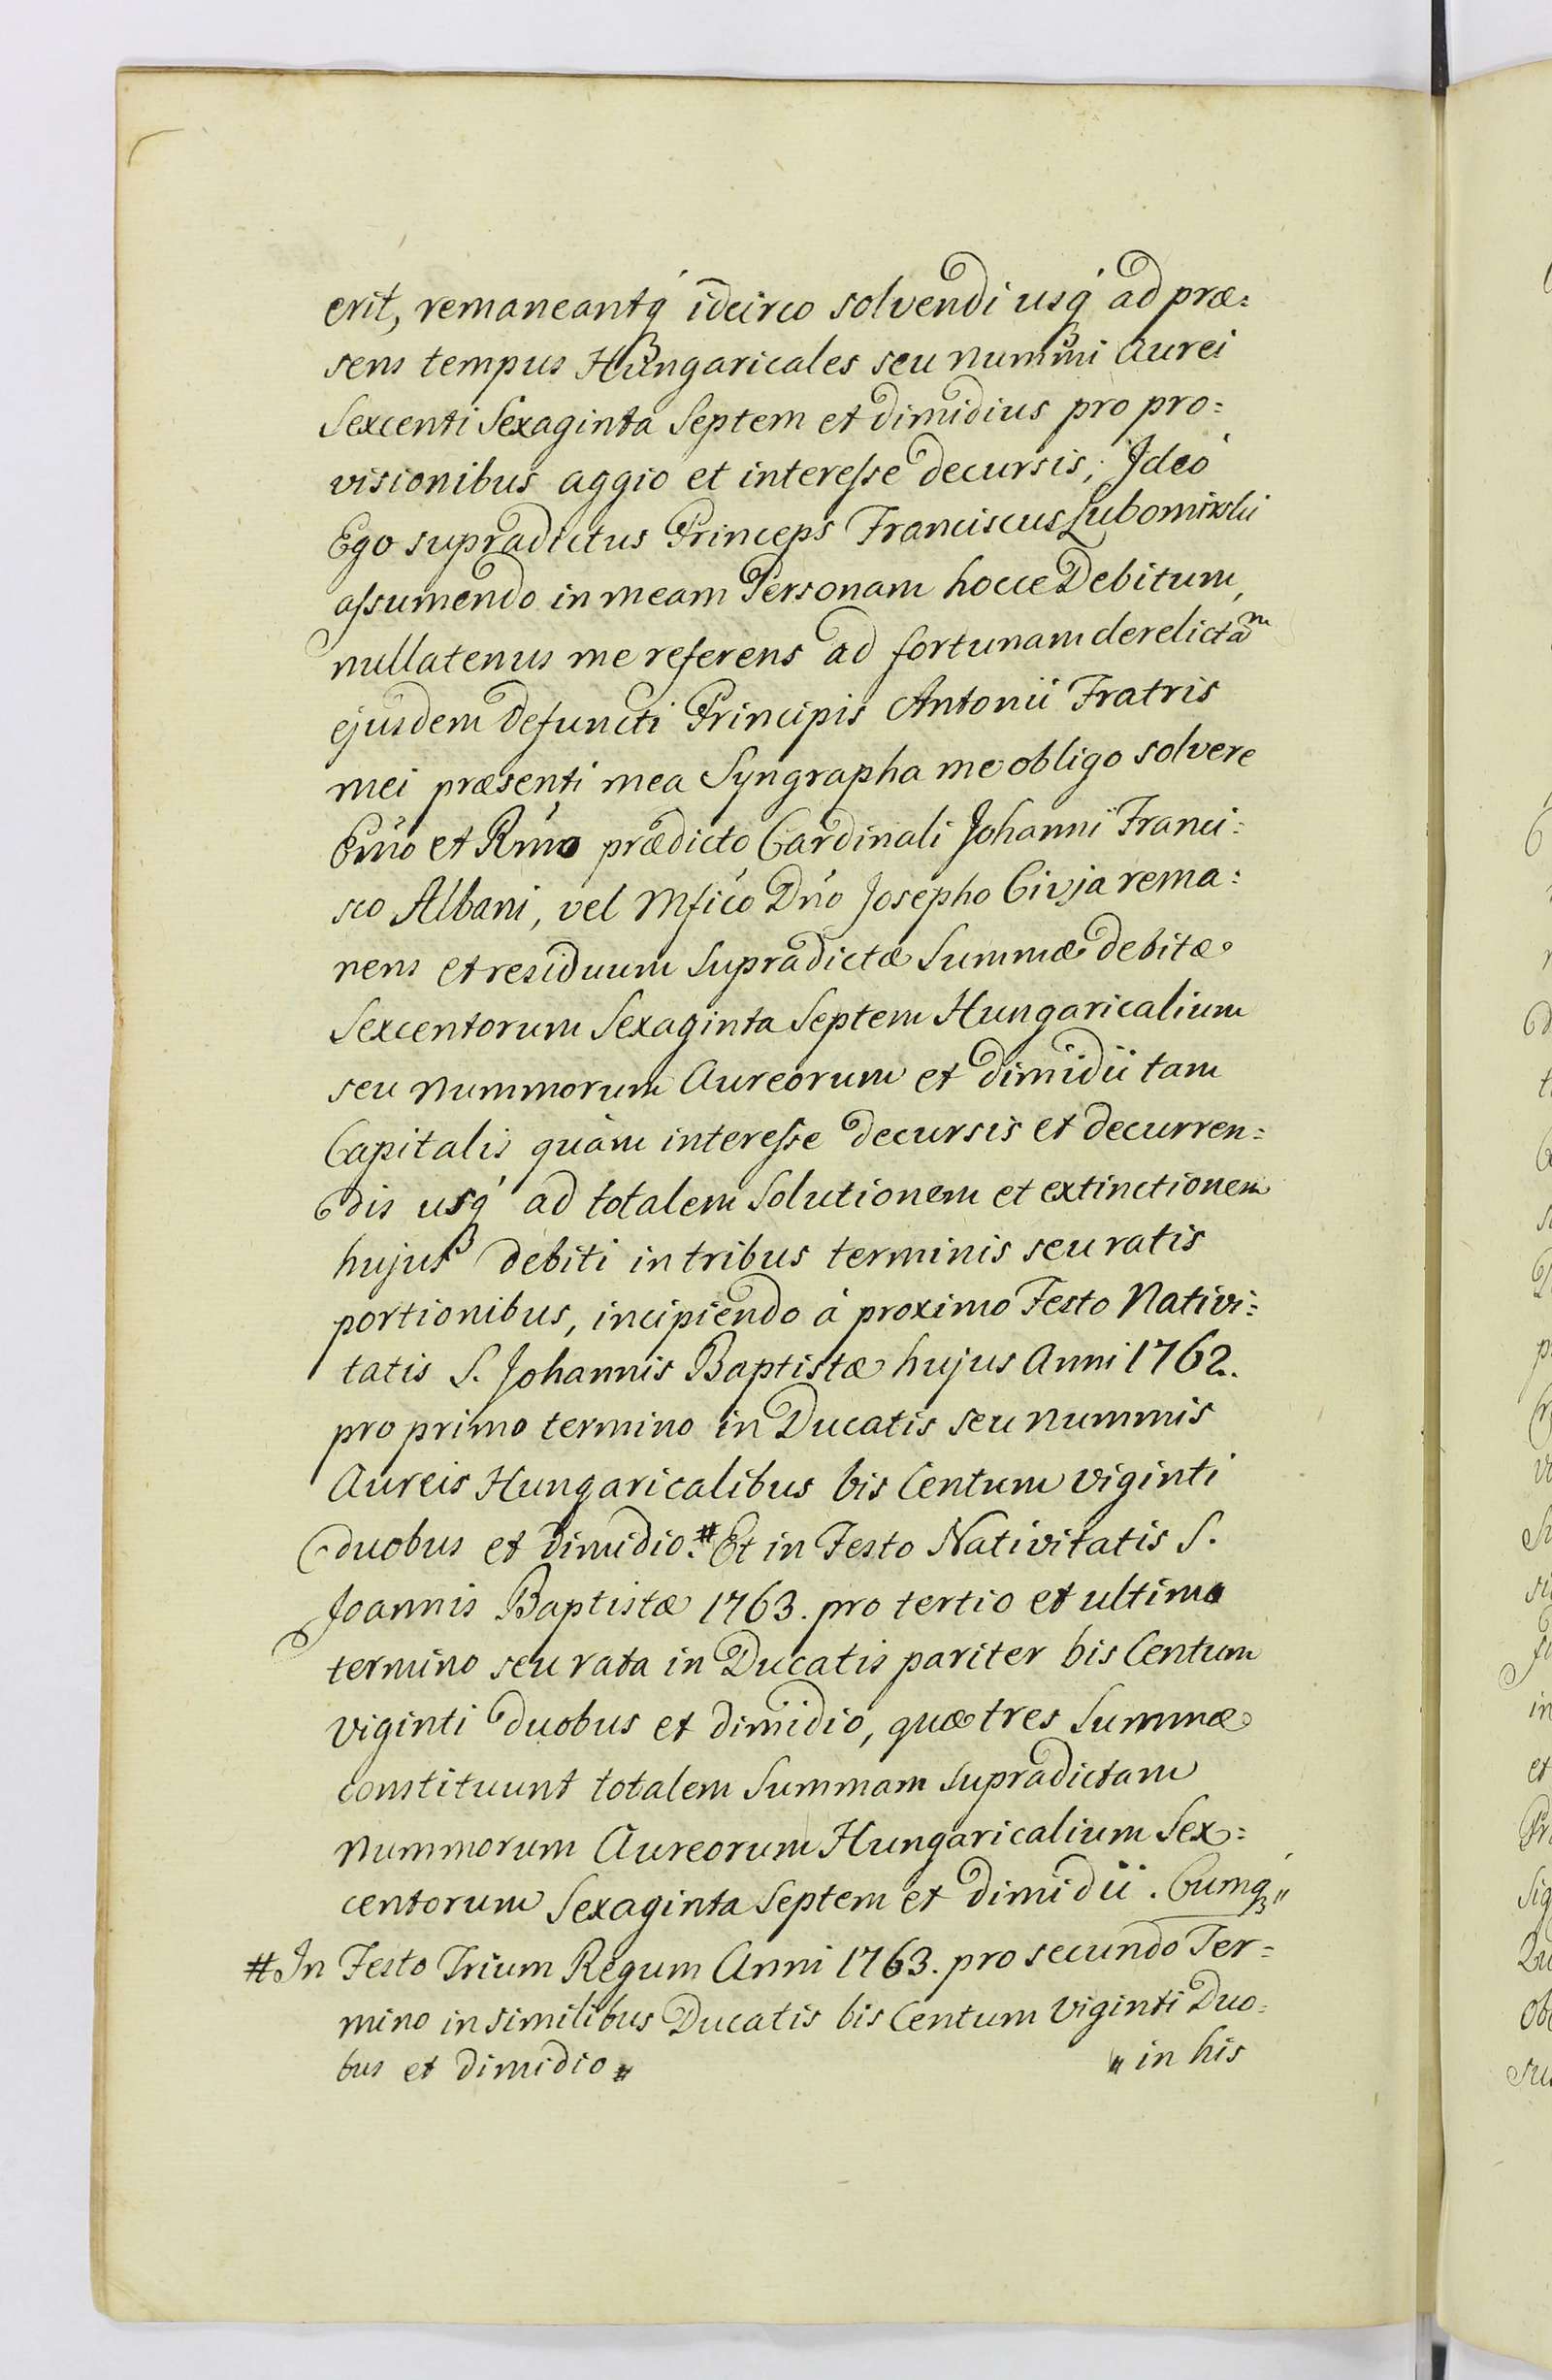 erit, remaneantq́ idcirco solvendi usq́ ad præ=
sens tempus Hungaricales seu nummi Aurei
Sexcenti Sexaginta Septem et dimidius pro pro=
visionibus aggio et interesse decursis; Ideó
Ego supradictus Princeps Franciscus Lubomirski
assumendo in meam Personam hocce Debitum,
nullatenus me referens ad fortunam derelictaᵐ
ejusdem defuncti Principis Antonii Fratris
mei præsenti mea Syngrapha me obligo solvere
Emo et Rmo prædicto Cardinali Johanni Franci=
sco Albani, vel Mfico Dno Josepho Civja rema=
nens et residuum supradictæ Summæ debitæ
Sexcentorum Sexaginta Septem Hungaricalium
seu Nummorum Aureorum et dimidii tam
Capitalis quàm interesse decursis et decurren=
dis usq́ ad totalem Solutionem et extinctionem
hujus debiti in tribus terminis seu ratis
portionibus, incipiendo à proximo Festo Nativi=
tatis S. Johannis Baptistæ hujus Anni 1762.
pro primo termino in Ducatis seu nummis
Aureis Hungaricalibus bis Centum viginti
duobus et dimidio.# Et in Festo Nativitatis S.
Joannis Baptistæ 1763. pro tertio et ultimo
termino seu rata in Ducatis pariter bis Centum
viginti duobus et dimidio, quæ tres Summæ
constituunt totalem Summam supradictam
Nummorum Aureorum Hungaricalium Sex=
centorum Sexaginta Septem et dimidii. Cumq́〃
# In Festo Trium Regum Anni 1763. pro secundo Ter=
mino in similibus Ducatis bis Centum viginti Duo=
bus et dimidio #
〃 in his